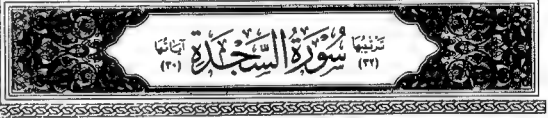 ترتيبها سُورَةُ السَّجْدَةِ آياتها
(٣٢) (٣٠)